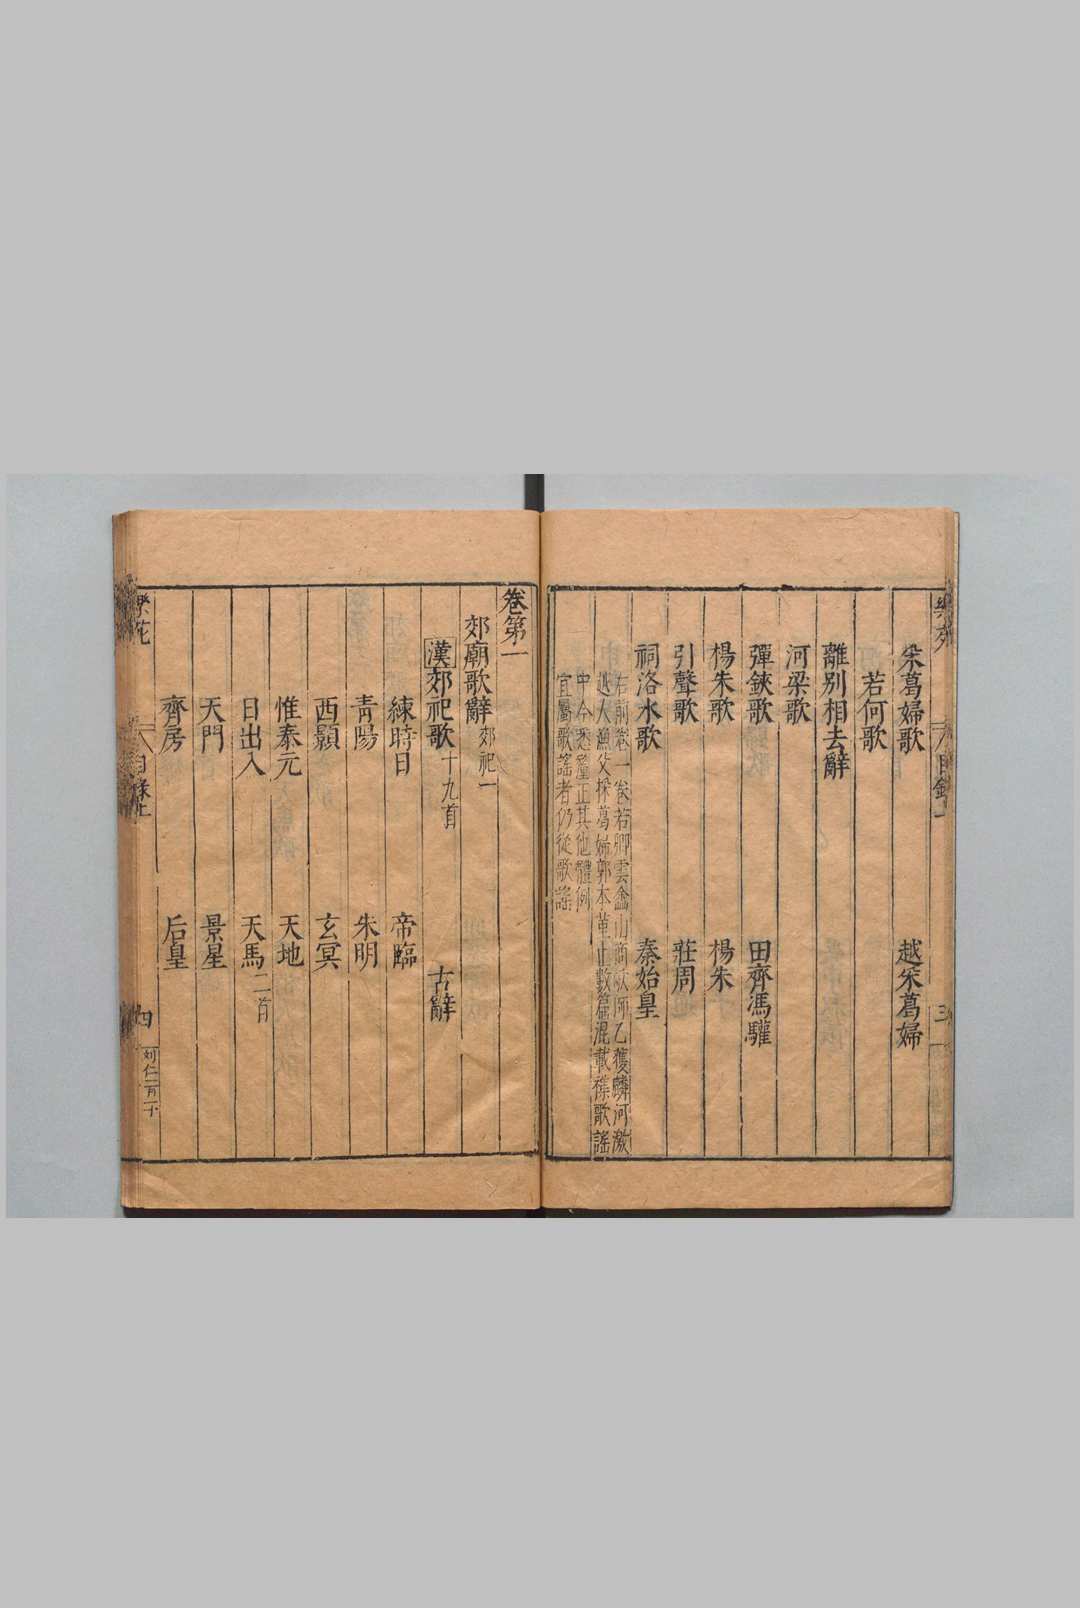 采葛婦歌 越采葛婦
若何歌
離別相去辭
河梁歌
彈鋏歌 田齊馮驩
楊朱歌 楊朱
引聲歌 莊周
祠洛水歌 秦始皇
右前卷一卷若卿雲塗山商歌師乙獲麟河激
越人漁父採葛婦郭本葷止數篇混載襍歌謠
中今悉釐正其他體例
宜屬歌謠者仍從歌謠
卷第一
郊廟歌辭 郊祀一
漢郊祀歌 十九首 古辭
練時日 帝臨
青陽 朱明
西顥 玄冥
惟泰元 天地
日出入 天馬 二首
天門 景星
齊房 后皇
目錄上 四